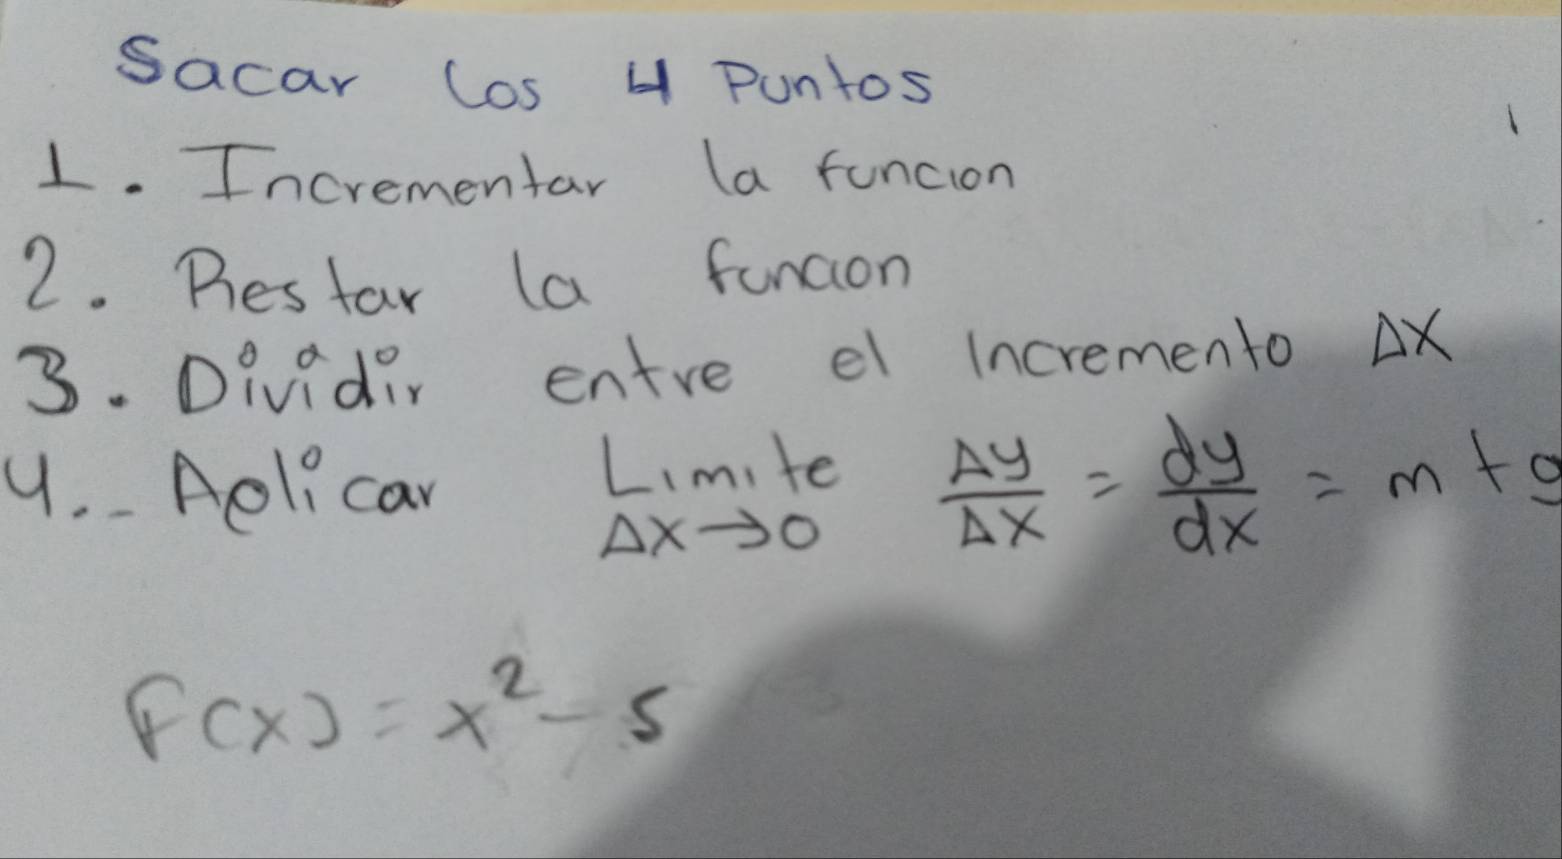 Sacar los 4 Puntos
1. Incrementar la funcion
2. Restar la funcion
3. Dividir entre el Incremento ΔX
4.- Aplicar Limite Δy/ΔX = dy/dx = m t g
ΔX→0
F(x) = x² - 5